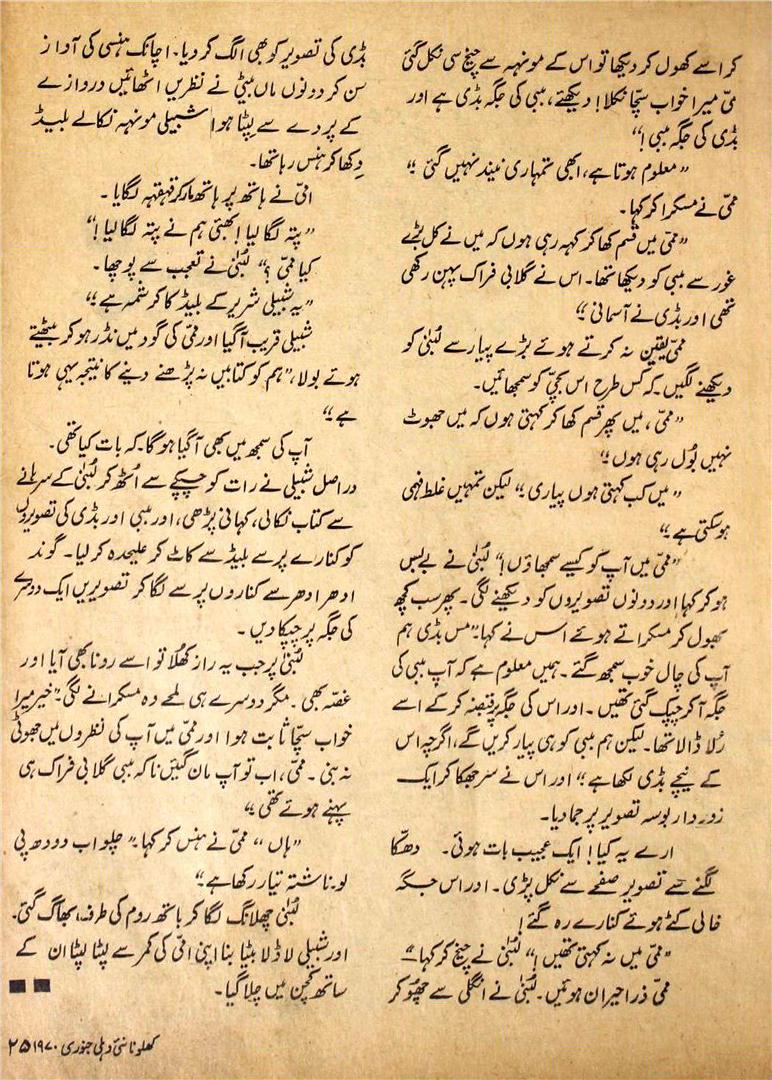 کر اسے کھول کر دیکھا تو اس کے مونہہ سے چیخ سی نکل گئی
ممّی میرا خواب سچّا نکلا! دیکھئے، ببی کی جگہ بڈی ہے اور
بڈی کی جگہ ببی!“
”معلوم ہوتا ہے، ابھی تمہاری نیند نہیں گئی“
ممّی نے مسکرا کر کہا۔
”ممّی میں قسم کھا کر کہہ رہی ہوں کہ میں نے کل بڑے
غور سے ببی کو دیکھا تھا۔ اس نے گلابی فراک پہن رکھی
تھی اور بڈی نے آسمانی“
ممّی یقین نہ کرتے ہوئے بڑے پیار سے لُبنیٰ کو
دیکھنے لگیں۔ کہ کس طرح اس بچّی کو سمجھائیں۔
”ممّی، میں پھر قسم کھا کر کہتی ہوں کہ میں جھوٹ
نہیں بُول رہی ہوں“
”میں کب کہتی ہوں پیاری“ لیکن تمہیں غلط فہمی
ہو سکتی ہے“
”ممّی میں آپ کو کیسے سمجھاؤں!“ لُبنیٰ نے بے بس
ہو کر کہا اور دونوں تصویروں کو دیکھنے لگی۔ پھر سب کچھ
بھول کر مسکراتے ہوئے اس نے کہا۔”مس بڈی ہم
آپ کی چال خوب سمجھ گئے۔ ہمیں معلوم ہے کہ آپ ببی کی
جگہ آ کر چپک گئی تھیں۔ اور اس کی جگہ پر قبضہ کر کے اسے
رُلا ڈالا تھا۔ لیکن ہم ببی کو ہی پیار کریں گے، اگرچہ اس
کے نیچے بڈی لکھا ہے“ اور اس نے سر جھکا کر ایک
زوردار بوسہ تصویر پر جما دیا۔
ارے یہ کیا! ایک عجیب بات ہوئی۔ دھکّا
لگنے سے تصویر صفحے سے نکل پڑی۔ اور اس جگہ
خالی کٹے ہوئے کنارے رہ گئے!
”ممّی میں نہ کہتی تھیں!“ لُبنیٰ نے چیخ کر کہا۔“
ممّی ذرا حیران ہوئیں۔ لُبنیٰ نے انگلی سے چھو کر
بڈی کی تصویر کو بھی الگ کر دیا۔ اچانک ہنسی کی آواز
سن کر دونوں ماں بیٹی نے نظریں اٹھائیں دروازے
کے پردے سے لپٹا ہوا شبیلی مونہہ نکالے بلیڈ
دکھا کر ہنس رہا تھا۔
امّی نے ہاتھ پر ہاتھ مار کر قہقہہ لگایا۔
”پتہ لگا لیا! بھئی ہم نے پتہ لگا لیا!“
کیا ممّی؟“ لُبنیٰ نے تعجب سے پوچھا۔
”یہ شبیلی شریر کے بلیڈ کا کرشمہ ہے“
شبیلی قریب آ گیا اور ممّی کی گود میں نڈر ہو کر بیٹھتے
ہوئے بولا،”ہم کو کتابیں نہ پڑھنے دینے کا نتیجہ یہی ہوتا
ہے“
آپ کی سمجھ میں بھی آ گیا ہوگا۔ کہ بات کیا تھی۔
دراصل شبیلی نے رات کو چپکے سے اُٹھ کر لُبنیٰ کے سرہانے
سے کتاب نکالی، کہانی پڑھی، اور ببی اور بڈی کی تصویروں
کو کنارے پر سے بلیڈ سے کاٹ کر علیحدہ کر لیا۔ گوند
ادھر ادھر سے کناروں پر سے لگا کر تصویریں ایک دوسرے
کی جگہ پر چپکا دیں۔
لُبنیٰ پر جب یہ راز کھُلا تو اسے رونا بھی آیا اور
غصّہ بھی۔ مگر دوسرے ہی لمحے وہ مسکرانے لگی۔”خیر میرا
خواب سچّا ثابت ہوا اور ممّی میں آپ کی نظروں میں جھوٹی
نہ بنی۔ ممّی، اب تو آپ مان گئیں نا کہ ببی گلابی فراک ہی
پہنے ہوئے تھی“
”ہاں“ ممّی نے ہنس کر کہا۔”چلو اب دودھ پی
لو۔ ناشتہ تیار رکھا ہے“
لُبنیٰ چھلانگ لگا کر باتھ روم کی طرف، بھاگ گئی۔
اور شبیلی لاڈلا بیٹا بنا اپنی امّی کی کمر سے لپٹا لپٹا ان کے
ساتھ کچن میں چلا گیا۔
کھلونا نئی دہلی جنوری ۱۹۷۰ ۲۵